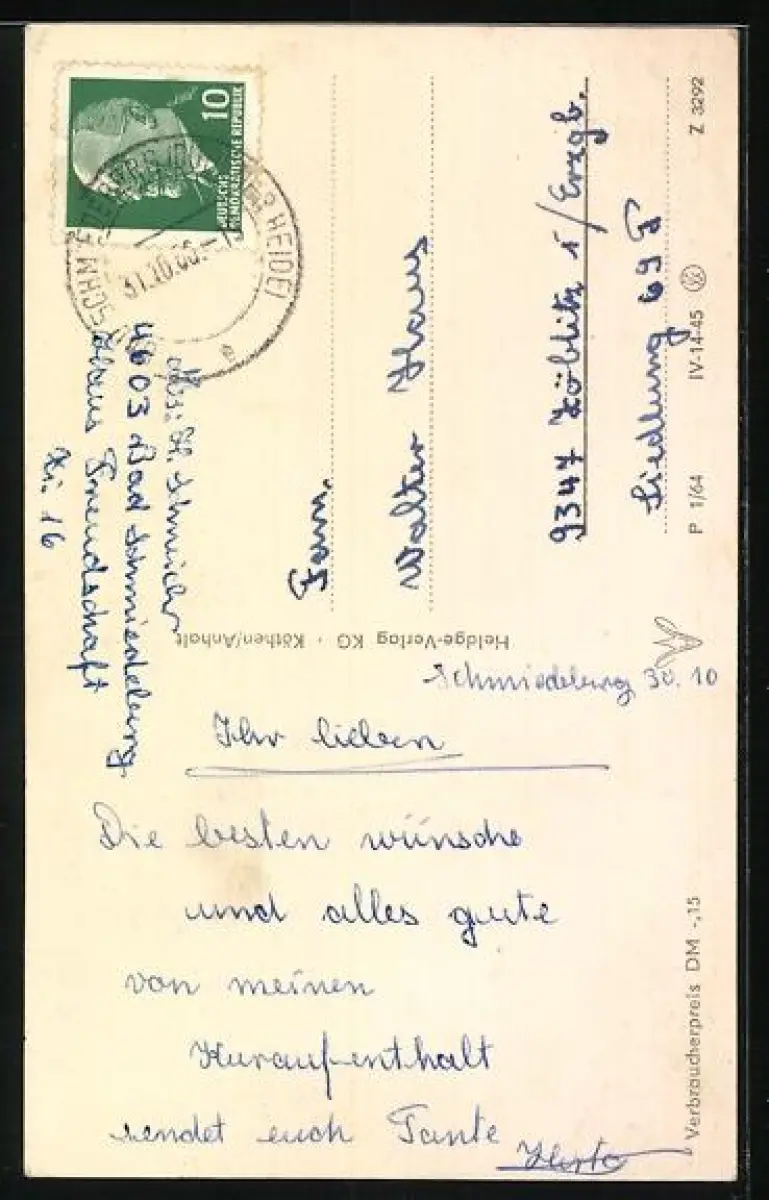 Schmiedeberg 30.10
Ihr lieben
Die besten wünsche
und alles gute
von meinen
Kuraufenthalt
sendet euch Tante
Herta
Abs: H.
4603 Bad Schmiedeberg
Haus Freundschaft
Zi. 16
10
DEUTSCHE
DEMOKRATISCHE REPUBLIK
31.10.66
Fam.
Walter
9347 Zöblitz i/Erzgb.
Siedlung 69 F
Heldge-Verlag KG · Köthen/Anhalt
P 1/64 IV-14-45 Z 3292
Verbraucherpreis DM -,15